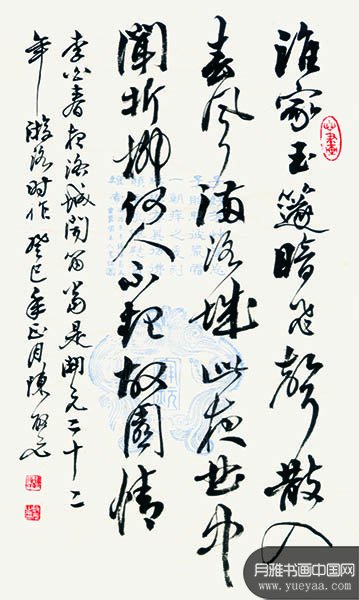 誰家玉篴暗飛聲散入
春风满洛城此夜曲中
聞折柳何人不起故園情
李白春夜洛城闻笛當是開元二十二
年游洛时作癸巳年正月陳
月雅书画中国网
www.yueyaa.com